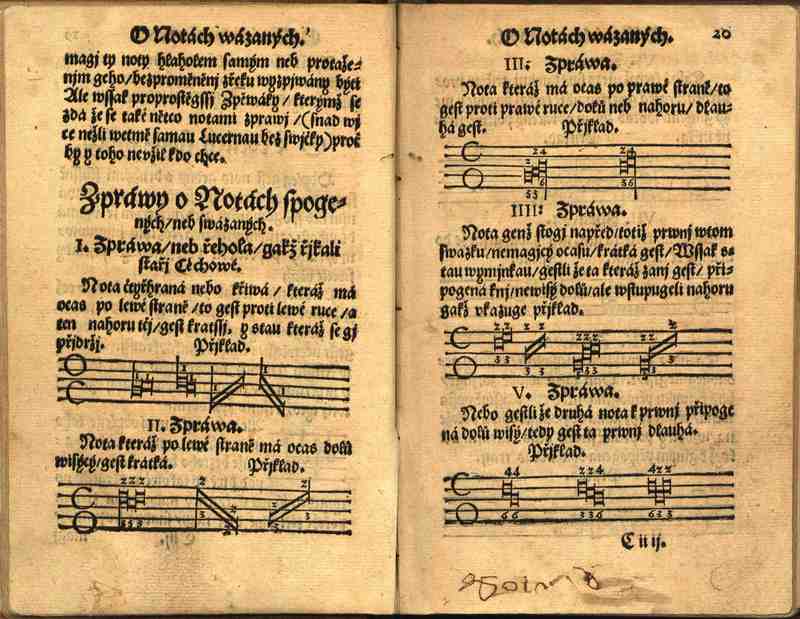 O Notách wázaných.
magj ty noty hlaholem samým neb protaže-
njm geho/bezproměněnj zřeku wyzpjwány býti
Ale wssak proprostěgssj Zpěwáky/ kterýmž se
zdá že se také něteo notami zprawj /(snad wj
ce nežli wetmě samau Lucernau bez swjčky)proč
by y toho nevžil kdo chce.
Zpráwy o Notách spoge-
ných/neb swázaných.
I. Zpráwa/neb řehola/gakž řjkali
staři Čechowé.
Nota čtyřhraná nebo křiwá / kteráž má
ocas po lewé straně /to gest proti lewé ruce /a
ten nahoru těj/gest kratssj, y s tau kteráž se gj
přjdržj. Přjklad.
1 1 1 1
II. Zpráwa.
Nota kteráž po lewé straně má ocas dolů
wisycý/gest krátká. Přjklad.
2 2 2 2 2
3 3 3 3 3 3
O Notách wázaných. 20
III. Zpráwa.
Nota kteráž má ocas po prawé straně/to
gest proti prawé ruce/dolů neb nahoru/ dlau-
há gest. Přjklad.
2 4 2 4
2 6 6
3 3 3 6
IIII. Zpráwa.
Nota genž stogj napřed/totiž prwnj wtom
swazku/nemagjcý ocasu/krátká gest/Wssak s-
tau wymjnkau/gestli že ta kteráž zanj gest/ při-
pogená knj/newisý dolů/ale wstupugeli nahoru
gakž vkazuge přjklad.
2 2 2 2 2 2 2
3 3 3 3 3 3 3 3
V. Zpráwa.
Nebo gestli že druhá nota k prwnj připoge
ná dolů wisý/tedy gest ta prwnj dlauhá.
Přjklad.
4 4 2 2 4 4 2 2
6 6 3 3 6 6 3 3
C iij.